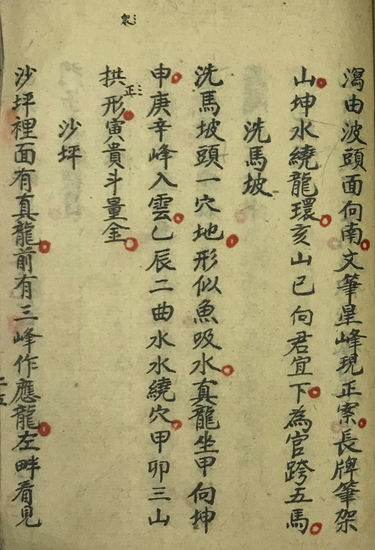 瀉由波頭面向南文筆星峰現正案長牌筆架
山坤水繞龍環亥山巳向君宜下為官跨五馬
洗馬坡
洗馬坡頭一穴地形似魚吸水真龍坐甲向坤
申庚辛峰入雲乙辰二曲水水繞穴甲卯三山
拱形寅貴斗量金
正
沙坪
沙坪裡面有真龍前有三峰作應龍左畔看見